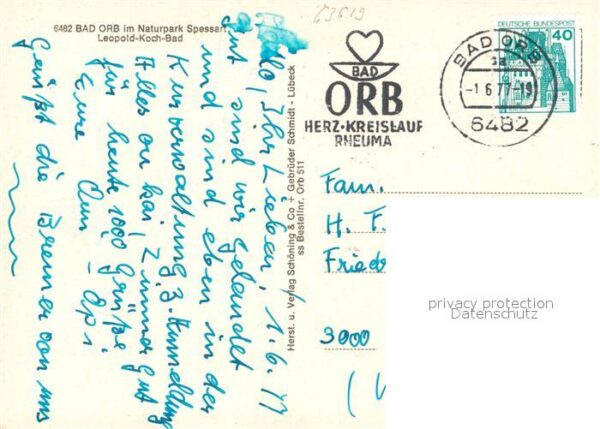 6482 BAD ORB im Naturpark Spessart
Leopold-Koch-Bad
Hallo, Ihr Lieben, 1.6.77
Gut sind wir gelandet
und sind eben in der
Kurverwaltung z. Anmeldung
Alles ok bei, Zimmer gut
für heute 1000 Grüße
Eure Omi - Opi
Grüßt die Bremer von uns
Herst. u. Verlag Schöning & Co + Gebrüder Schmidt - Lübeck
ss Bestellnr. Orb 511
23619
BAD
ORB
HERZ·KREISLAUF
RHEUMA
BAD ORB
-1.6.77-19
6482
DEUTSCHE BUNDESPOST
40
Fam.
H. F.
Fried
3000
privacy protection
Datenschutz